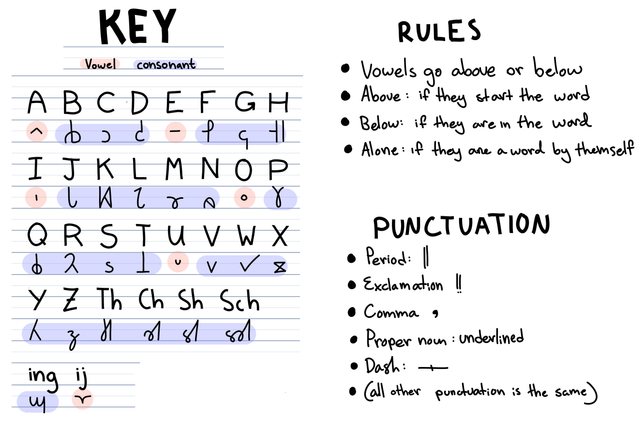 KEY
Vowel consonant
A B C D E F G H
I J K L M N O P
Q R S T U V W X
Y Z Th Ch Sh Sch
ing ij
RULES
• Vowels go above or below
• Above: if they start the word
• Below: if they are in the word
• Alone: if they are a word by themself
PUNCTUATION
• Period: ||
• Exclamation !!
• Comma ,
• Proper noun: underlined
• Dash:
• (all other punctuation is the same)